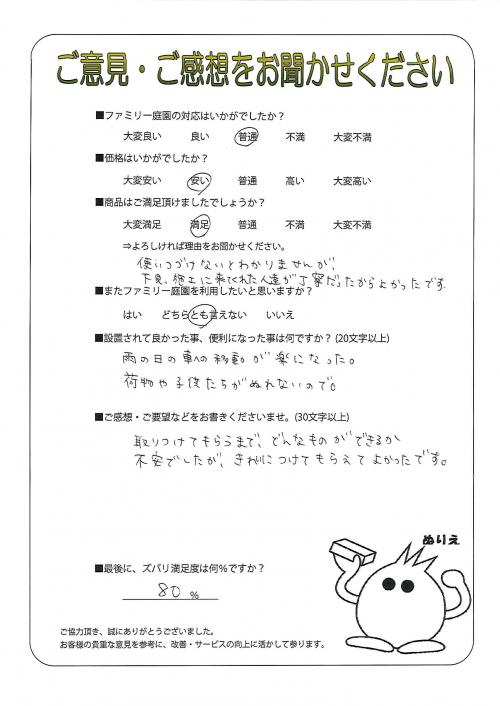 ご意見・ご感想をお聞かせください
■ファミリー庭園の対応はいかがでしたか？
大変良い 良い 普通 不満 大変不満
■価格はいかがでしたか？
大変安い 安い 普通 高い 大変高い
■商品はご満足頂けましたでしょうか？
大変満足 満足 普通 不満 大変不満
⇒よろしければ理由をお聞かせください。
使いつづけないとわかりませんが、
下見、施工に来てくれた人達が丁寧だったからよかったです。
■またファミリー庭園を利用したいと思いますか？
はい どちらとも言えない いいえ
■設置されて良かった事、便利になった事は何ですか？(20文字以上)
雨の日の車への移動が楽になった。
荷物や子供たちがぬれないので。
■ご感想・ご要望などをお書きくださいませ。(30文字以上)
取りつけてもらうまで、どんなものができるか
不安でしたが、きれいにつけてもらえてよかったです。
ぬりえ
■最後に、ズバリ満足度は何%ですか？
80 %
ご協力頂き、誠にありがとうございました。
お客様の貴重な意見を参考に、改善・サービスの向上に活かして参ります。